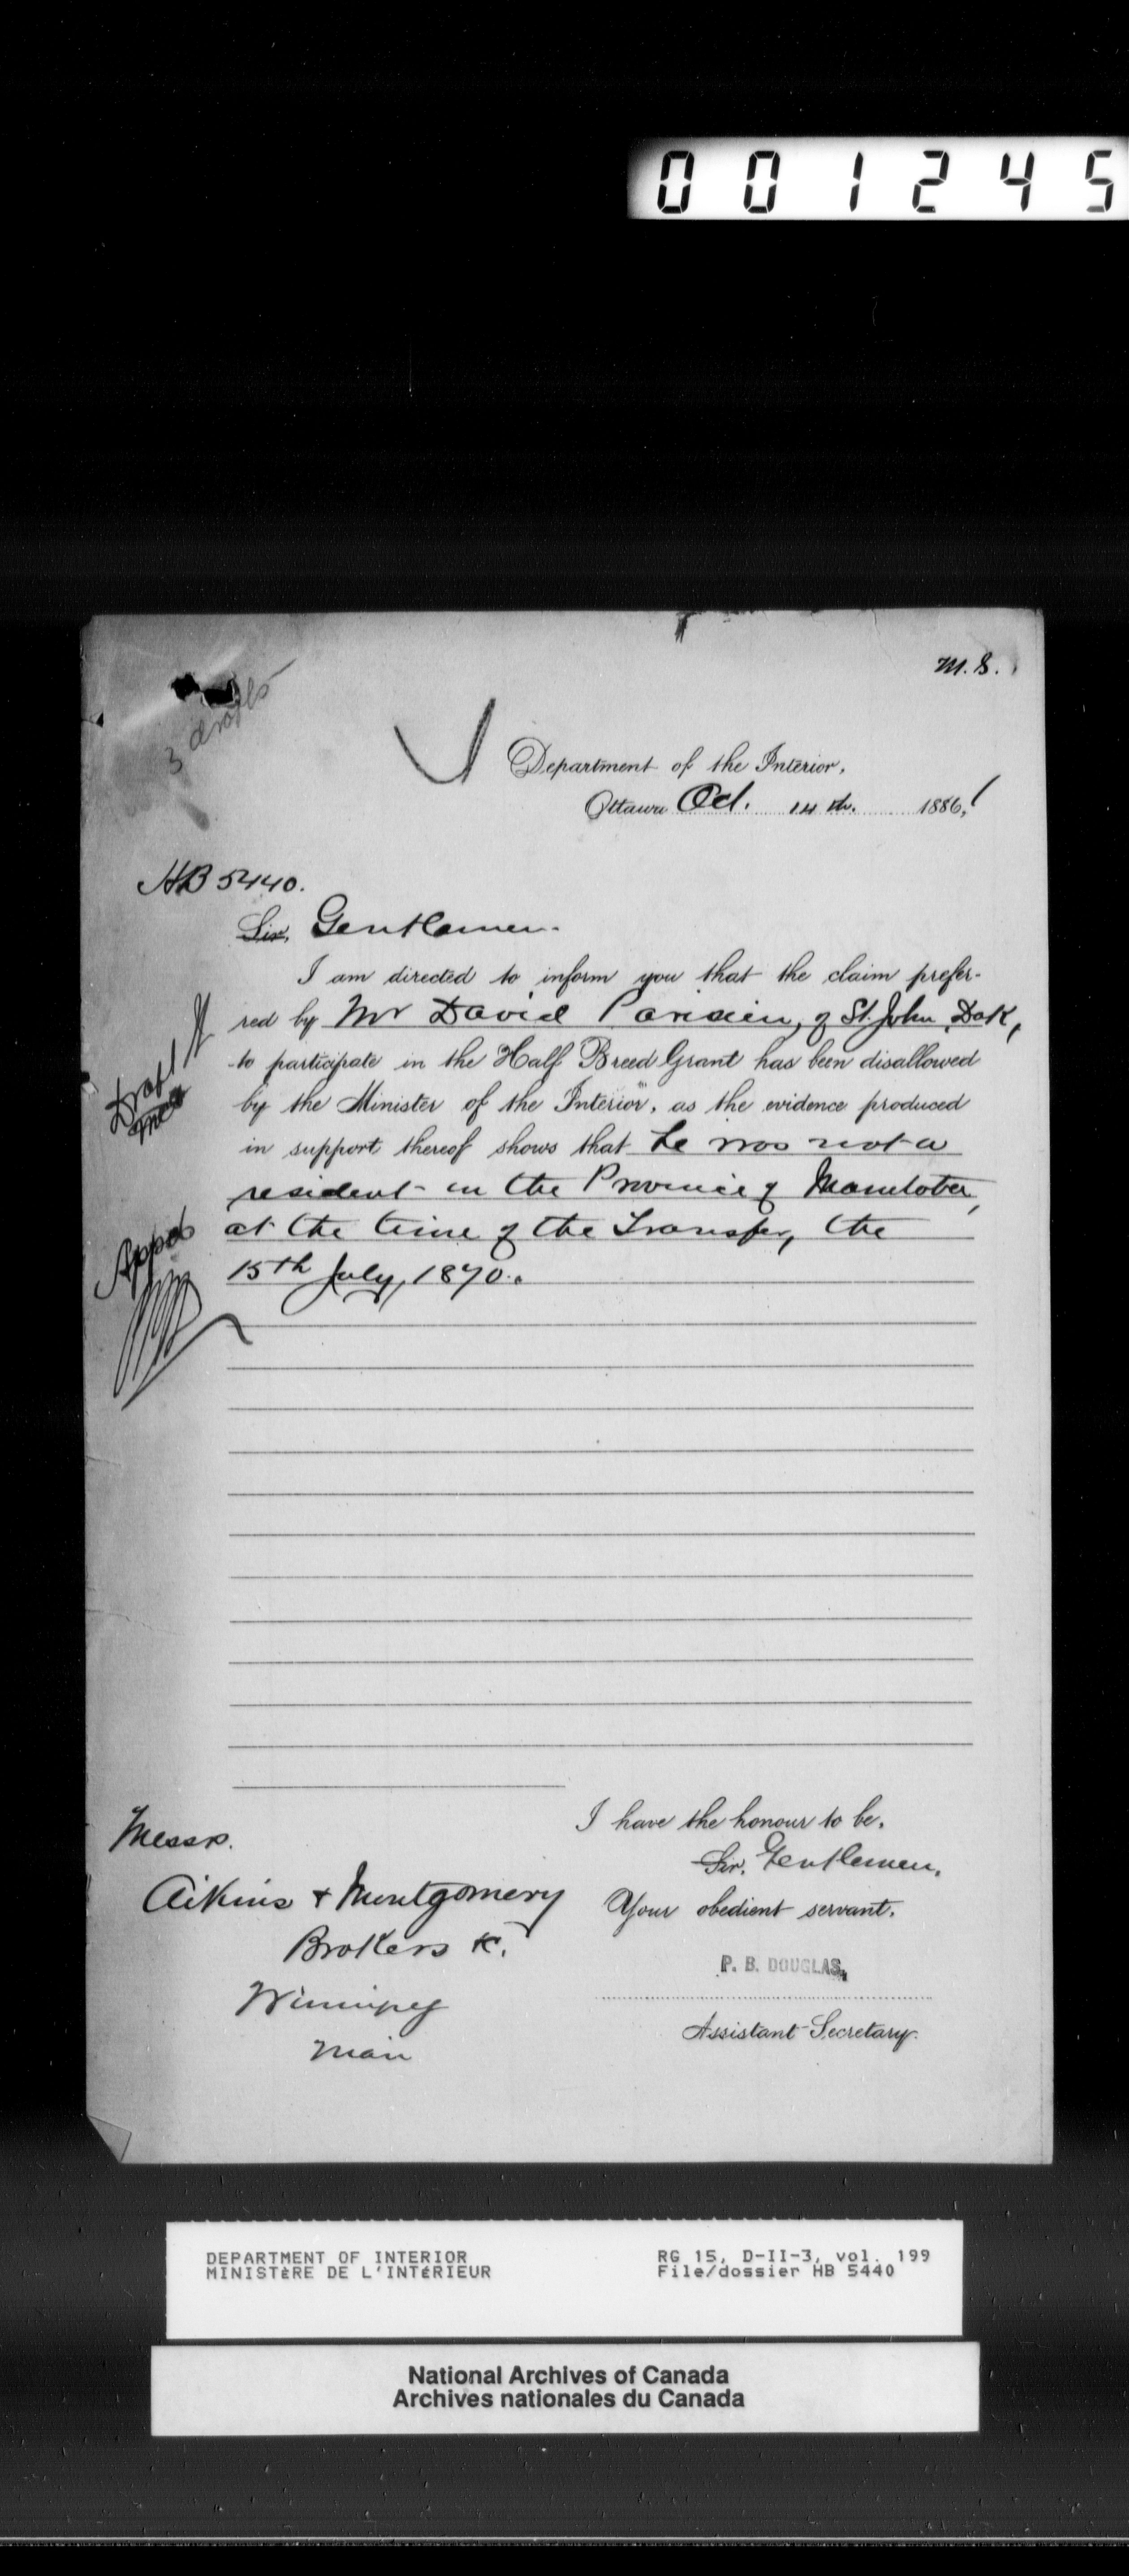 001245
M.S.
3 drafts
Department of the Interior,
Ottawa Oct. 14th. 1886.
HB 5440.
Sir, Gentlemen.
I am directed to inform you that the claim prefer-
red by Mr David Parisien, of St. John, Dak,
to participate in the Half Breed Grant has been disallowed
by the Minister of the Interior, as the evidence produced
in support thereof shows that he was not a
resident in the Province of Manitoba,
at the time of the Transfer, the
15th July, 1870.
Draft
Appd
I have the honour to be,
Sir, Gentlemen,
Your obedient servant,
P. B. DOUGLAS,
Assistant Secretary.
Messrs.
Aikins & Montgomery
Brokers &c.
Winnipeg
Man
DEPARTMENT OF INTERIOR
MINISTÈRE DE L'INTÉRIEUR
RG 15, D-II-3, vol. 199
File/dossier HB 5440
National Archives of Canada
Archives nationales du Canada